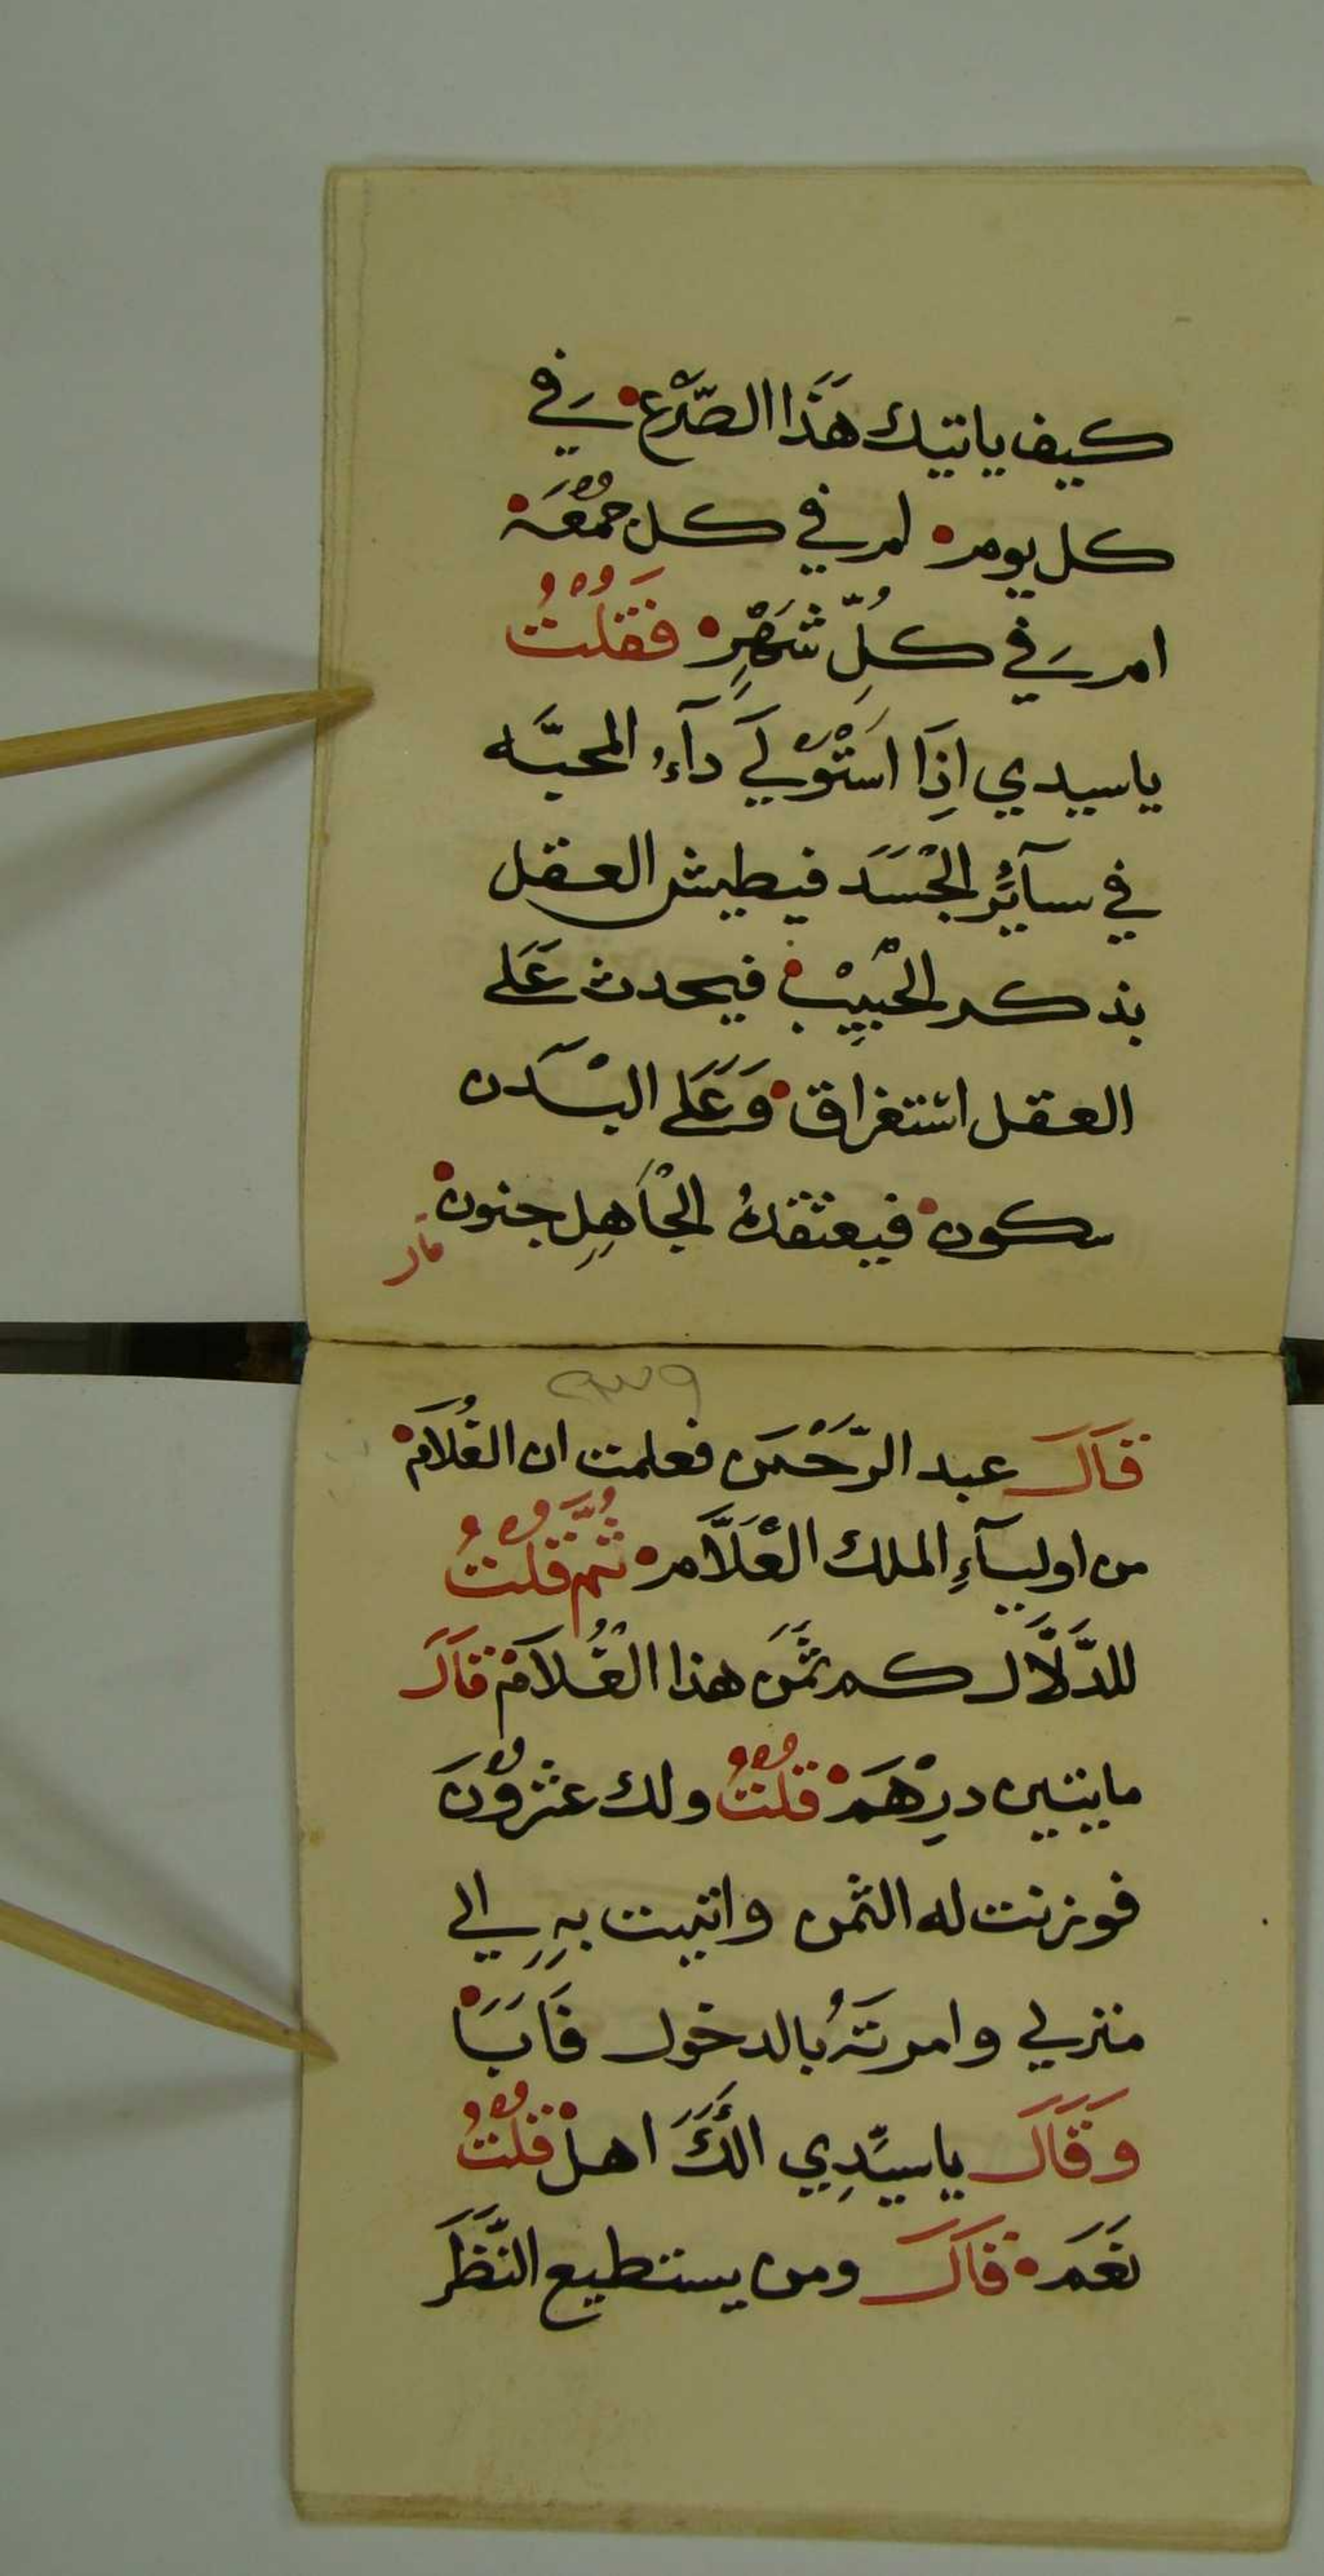 كيف ياتيك هَذَا الصّرْع في
كل يوم لم في كل جمُعَة
ام في كلِّ شَهْرٍ فَقُلْتُ
ياسيدي اذِا اسَتَوْلَي دآءُ المحبَّه
في سآئرُ الْجَسَدَ فيطيش العقل
بذكر الحْبيِبْ فيحدث عَلَي
العقل استغراق وَعَلَي البَدن
سكون فيعتقدهُ الجْاَهِلِ جنون
قال
قَالَ عبد الرَّحْمَن فعلمت ان الغُلَامْ
من اوليآءِ الملك العَلَّام ثُمَّ قُلْتُ
للدَّلَّال كم ثمَنَ هذا الغُلَامْ قَالَ
مايتين درِْهَمْ قُلْتُ ولك عشروُْنَ
فوزنت له الثمن واتيت بهِِ الي
منزلي وامرتَهُ بالدخول فَاَبَا
وَقَالَ ياسيِّدِي الَكَ اهلْ قُلْتُ
نَعَم قَالَ ومن يستطيع النَّظَرَ